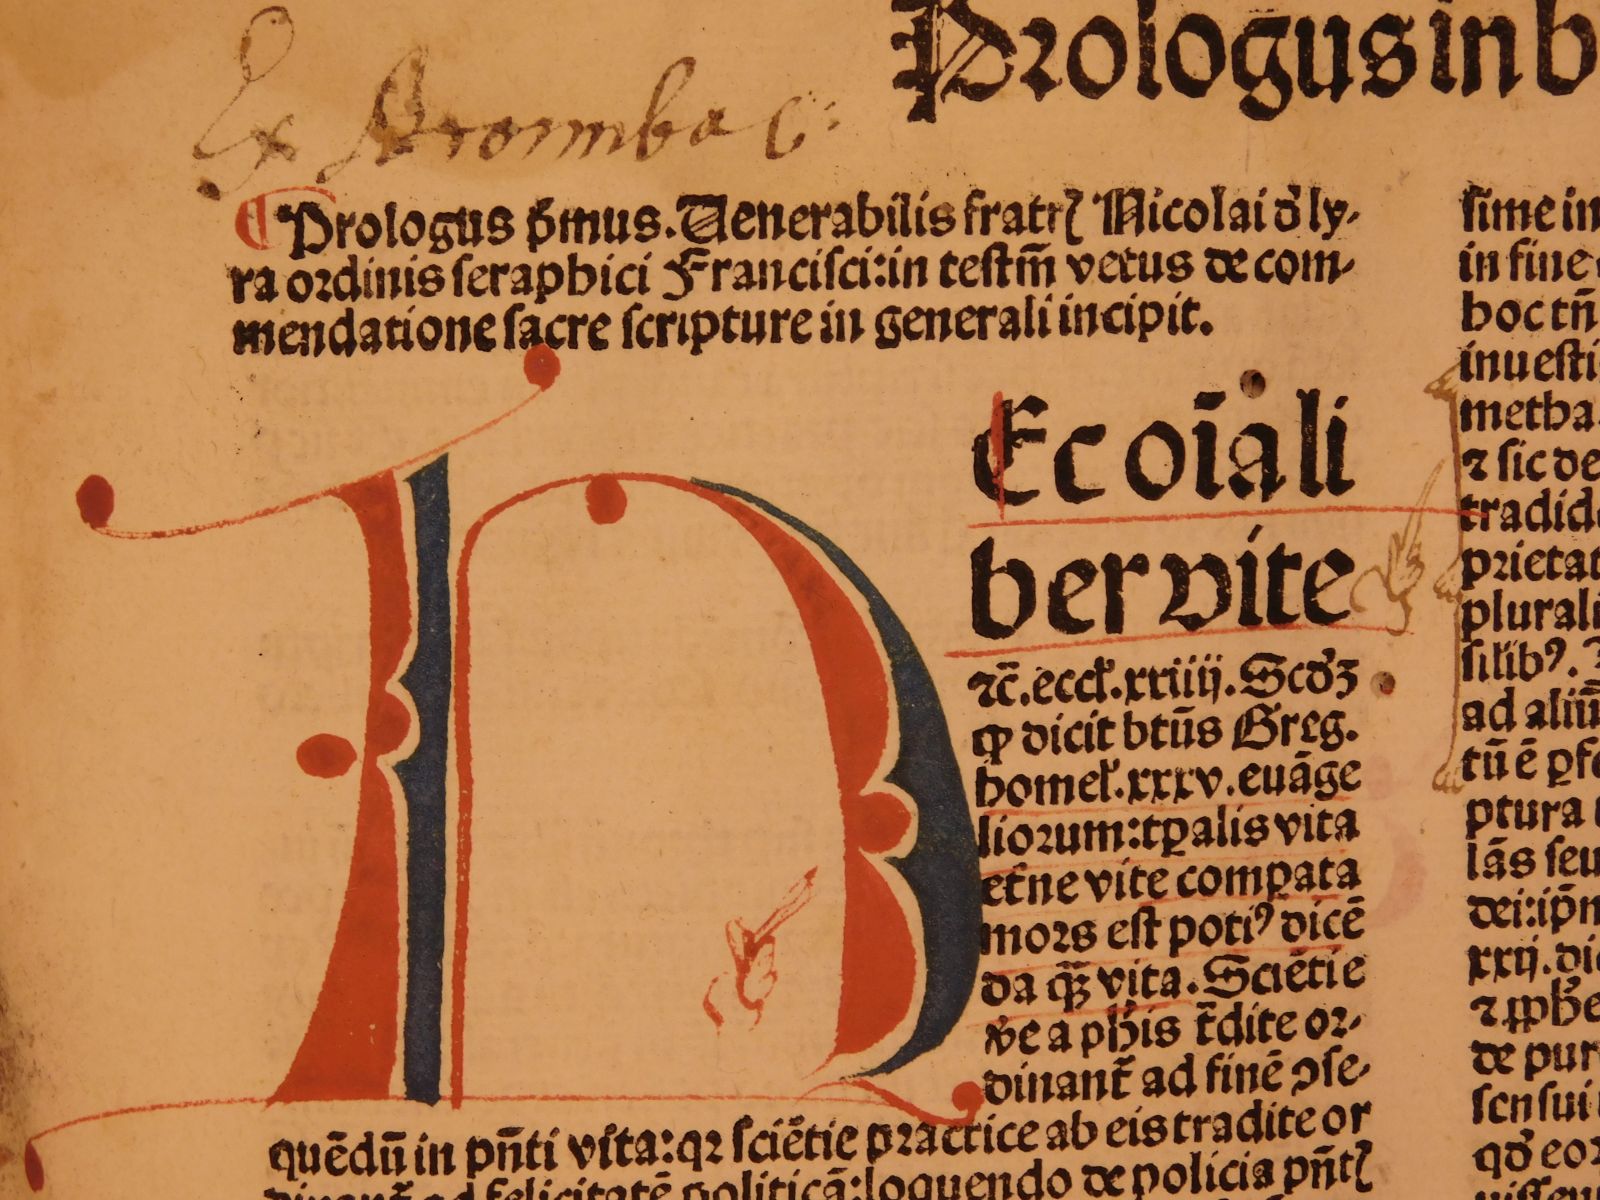 Ex
Prologus in b
Prologus p̄mus. Uenerabilis fratrꝭ Nicolai d̓ ly-
ra ordinis seraphici Francisci: in testm̄ vetus de com-
mendatione sacre scripture in generali incipit.
Ec oīa li
ber vite
⁊c̄. eccl̓. xxiiij. Scd̓ꝫ
ꝙ dicit btūs Greg.
homel̓. xxxv. euāge
liorum: tꝑalis vita
et̓ne vite comꝑata
mors est poti⁹ dicē
da qꝫ̄ vita. Sciētie
v̓e a ph̓is t̄dite or-
dinant̄ ad finē ↄse-
quēdū in pn̄ti vita: qꝛ sciētie practice ab eis tradite or
dinant̄ ad felicitatē politicā: loquendo de policia pn̄tꝭ
sime in
in fine
hoc tn̄
inuesti
metha
⁊ sic de
tradid
prietat
plurali
silib⁹.
ad aliū
tū ē ꝑfe
ptura
lās seu
dei: ip̄m
xxij. di
⁊ ꝓph̓e
de pur
sensui
qd̓ eor